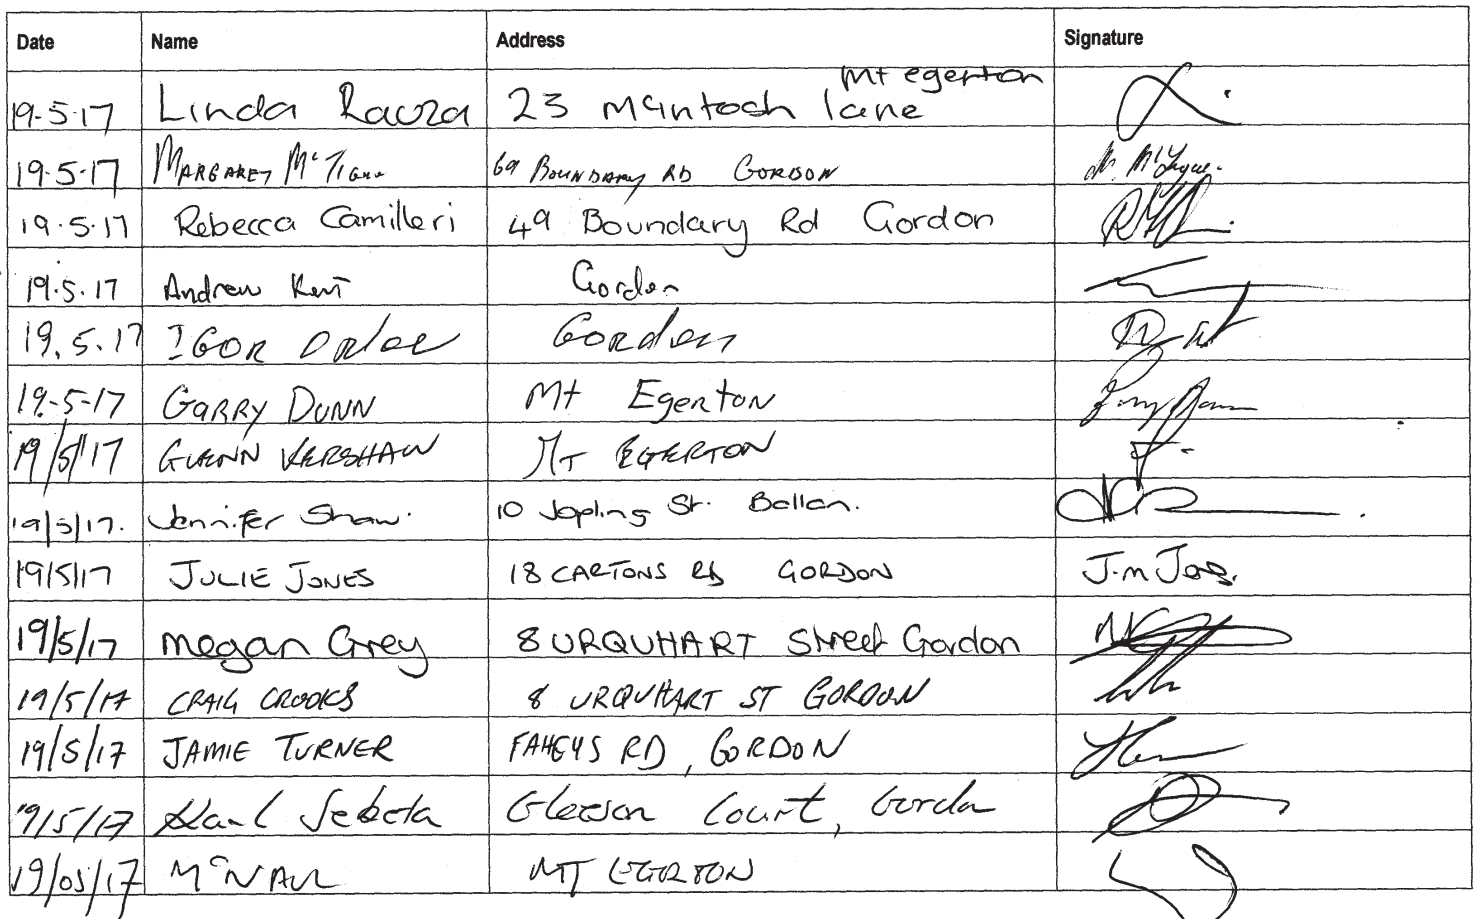 Date Name Address Signature
Mt egerton
19-5-17 Linda Rauza 23 McIntosh lane
19-5-17 MARGARET McTigue 69 BOUNDARY RD GORDON M. McTigue.
19.5.17 Rebecca Camilleri 49 Boundary Rd Gordon
19.5.17 Andrew Kent Gordon
19.5.17 IGOR Gordon
19-5-17 GARRY DUNN Mt Egerton
19/5/17 GLENN KERSHAW MT EGERTON
19/5/17. Jennifer Shaw. 10 Jopling St. Ballan.
19/5/17 JULIE JONES 18 CARTONS RD GORDON J.m Jones.
19/5/17 Megan Grey 8 URQUHART Street Gordon
19/5/17 CRAIG CROOKS 8 URQUHART ST GORDON
19/5/17 JAMIE TURNER FAHEYS RD, GORDON
19/5/17 Karl Sebeta Gleeson Court, Gordon
19/05/17 McNAUL MT EGERTON